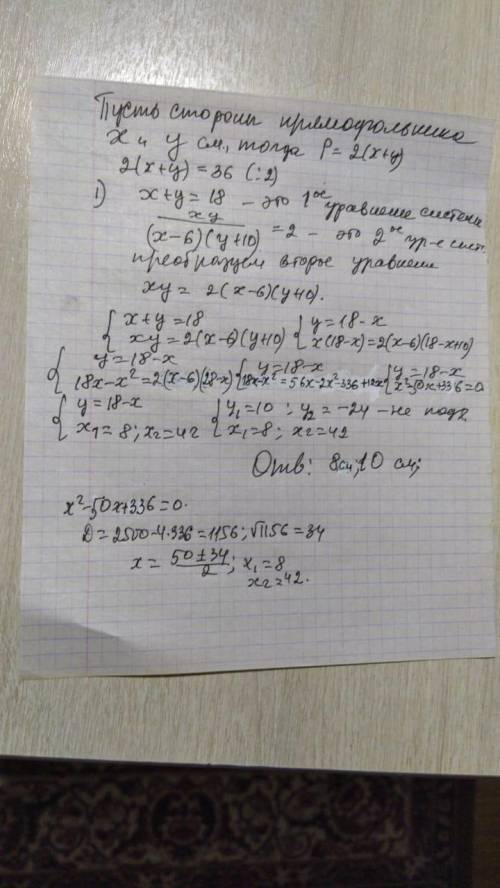 Пусть стороны прямоугольника
x и y см, тогда P = 2(x+y)
2(x+y) = 36 (:2)
1) x+y = 18 – это 1ое уравнение системы
xy/(x-6)(y+10) = 2 – это 2ое ур-е сист.
преобразуем второе уравнение
xy = 2(x-6)(y+10).
{ x+y = 18 { y = 18-x
xy = 2(x-6)(y+10) x(18-x) = 2(x-6)(18-x+10)
{ y = 18-x { y = 18-x { y = 18-x
18x-x² = 2(x-6)(28-x) 18x-x² = 56x-2x²-336+12x x²-50x+336=0
{ y = 18-x { y₁=10; y₂ = -24 – не подх.
x₁ = 8; x₂ = 42 x₁=8; x₂=42
Отв: 8см; 10 см;
x²-50x+336=0.
D = 2500-4·336=1156; √1156 = 34
x = 50±34/2; x₁ = 8
x₂=42.